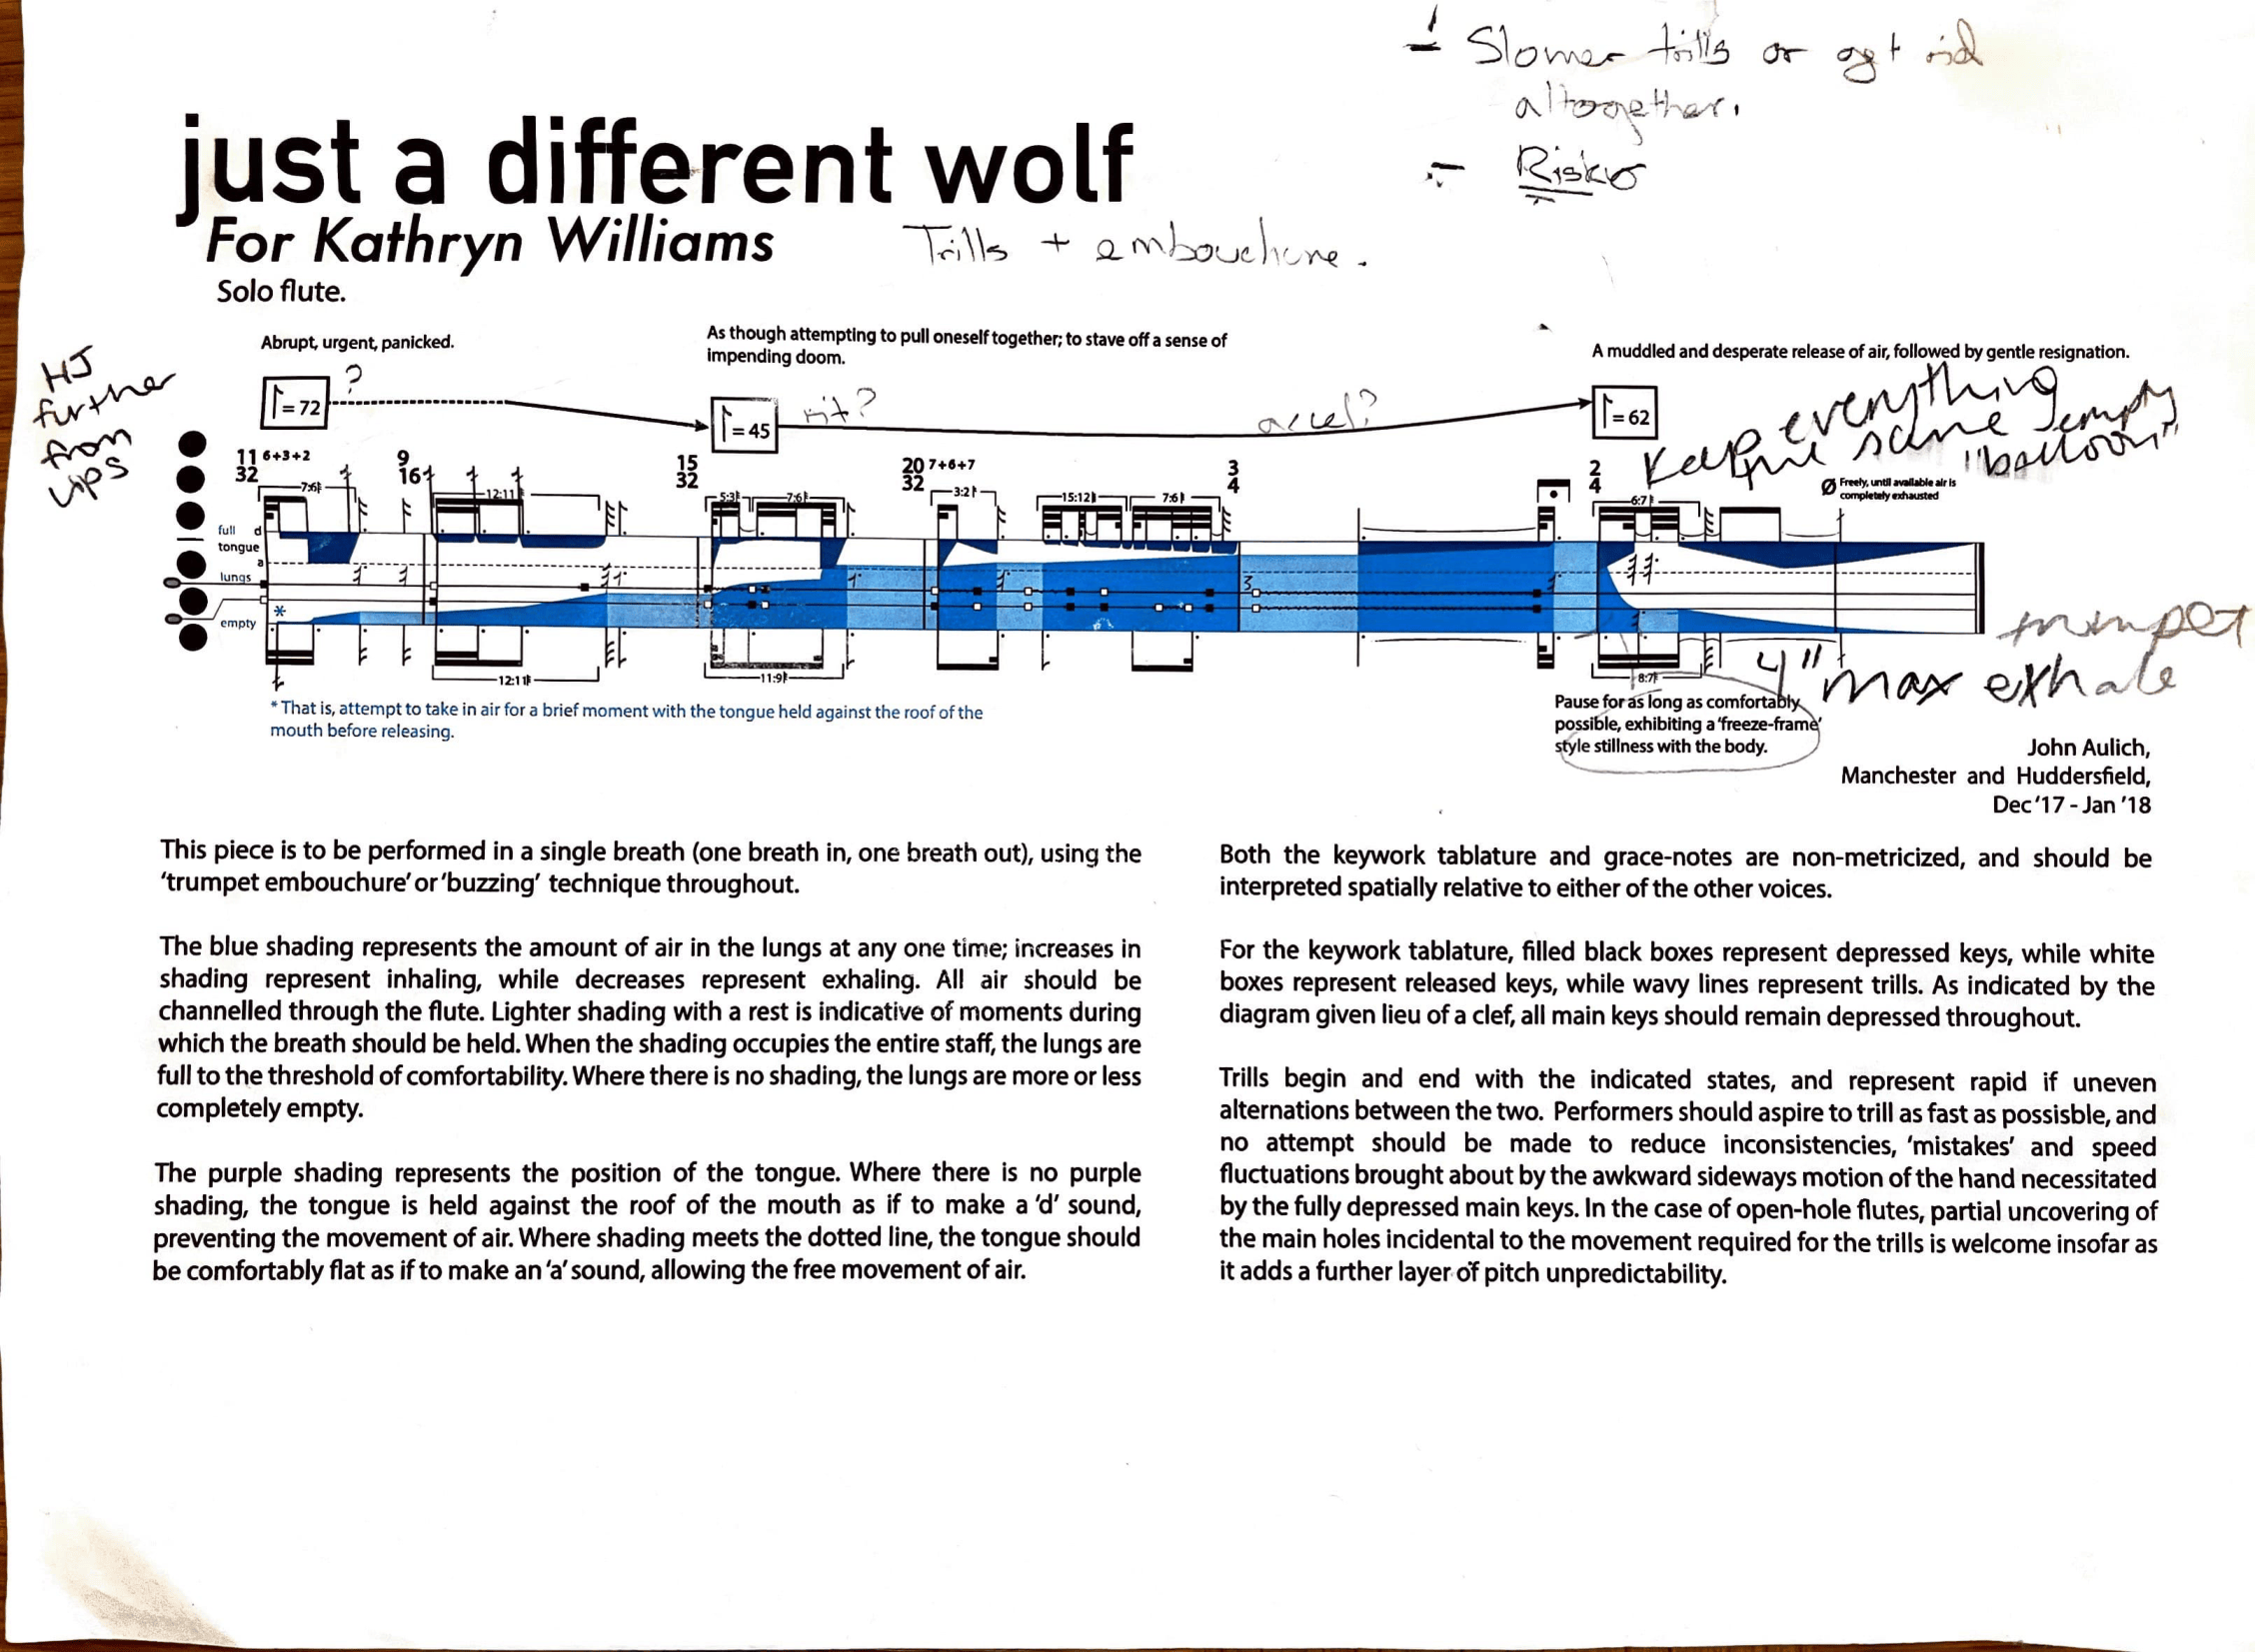 - Slower trills or get rid
altogether.
- Risko
just a different wolf
For Kathryn Williams
Trills + embouchure.
Solo flute.
Abrupt, urgent, panicked.
As though attempting to pull oneself together; to stave off a sense of
impending doom.
A muddled and desperate release of air, followed by gentle resignation.
HJ
further
from
lips
= 72
?
= 45
rit?
accel?
= 62
Keep everything
the same empty
"balloon"
11 6+3+2
32
9
16
15
32
20 7+6+7
32
3
4
2
4
Ø Freely, until available air is
completely exhausted
7:6
12:11
5:3
7:6
3:2
15:12
7:6
6:7
full d
tongue
a
lungs
empty
*
3
12:11
11:9
8:7
trumpet
4" max exhale
* That is, attempt to take in air for a brief moment with the tongue held against the roof of the
mouth before releasing.
Pause for as long as comfortably
possible, exhibiting a 'freeze-frame'
style stillness with the body.
John Aulich,
Manchester and Huddersfield,
Dec '17 - Jan '18
This piece is to be performed in a single breath (one breath in, one breath out), using the
'trumpet embouchure' or 'buzzing' technique throughout.
The blue shading represents the amount of air in the lungs at any one time; increases in
shading represent inhaling, while decreases represent exhaling. All air should be
channelled through the flute. Lighter shading with a rest is indicative of moments during
which the breath should be held. When the shading occupies the entire staff, the lungs are
full to the threshold of comfortability. Where there is no shading, the lungs are more or less
completely empty.
The purple shading represents the position of the tongue. Where there is no purple
shading, the tongue is held against the roof of the mouth as if to make a 'd' sound,
preventing the movement of air. Where shading meets the dotted line, the tongue should
be comfortably flat as if to make an 'a' sound, allowing the free movement of air.
Both the keywork tablature and grace-notes are non-metricized, and should be
interpreted spatially relative to either of the other voices.
For the keywork tablature, filled black boxes represent depressed keys, while white
boxes represent released keys, while wavy lines represent trills. As indicated by the
diagram given lieu of a clef, all main keys should remain depressed throughout.
Trills begin and end with the indicated states, and represent rapid if uneven
alternations between the two. Performers should aspire to trill as fast as possisble, and
no attempt should be made to reduce inconsistencies, 'mistakes' and speed
fluctuations brought about by the awkward sideways motion of the hand necessitated
by the fully depressed main keys. In the case of open-hole flutes, partial uncovering of
the main holes incidental to the movement required for the trills is welcome insofar as
it adds a further layer of pitch unpredictability.